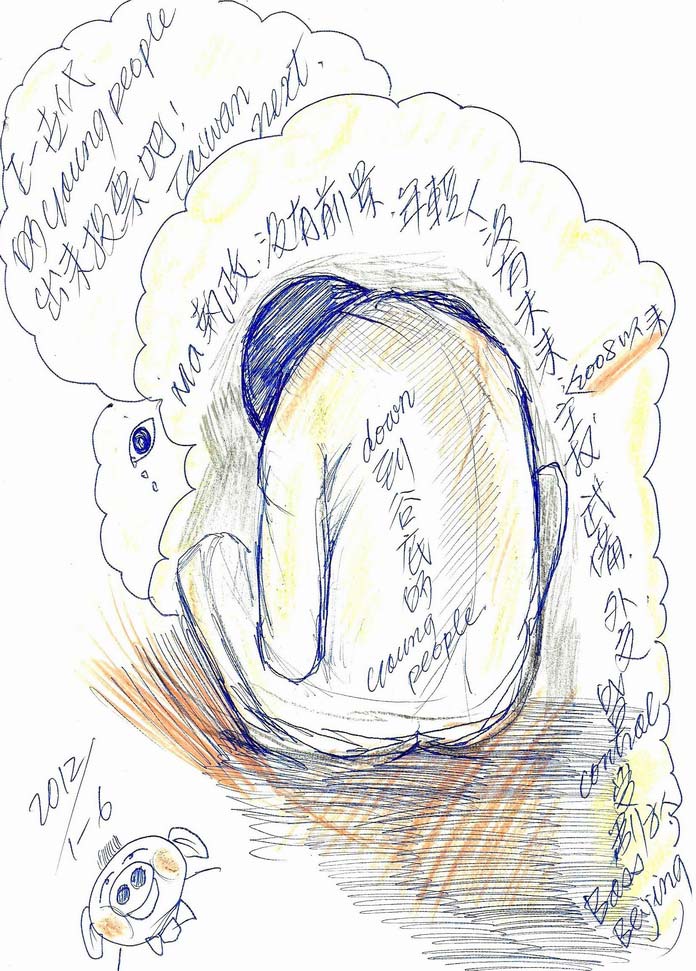 下一世代
的young people
出來投票吧!
Taiwan
next.
Ma 執政.沒有前景.年輕人沒有未來.
2008以來
主权.武備.外交
control
受制於
Boss
Beijing
down
到谷底的
young
people.
2012/
1-6